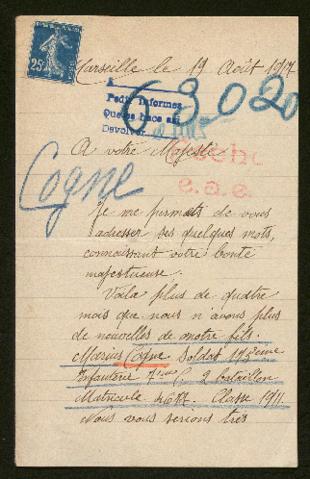 25c
Marseille le 19 Août 1917
Pedir Informes
Que se hace así
Devolver
63020
A votre Majesté
e.a.e.
Cogne
Je me permets de vous
adresser ses quelques mots,
connaissant votre bonté
majestueuse.
Voila plus de quatre
mois que nous n'avons plus
de nouvelles de notre fils.
Marius Cogne Soldat
Infanterie 7ème 2 bataillon
Matricule Classe 1911.
Nous vous serions très